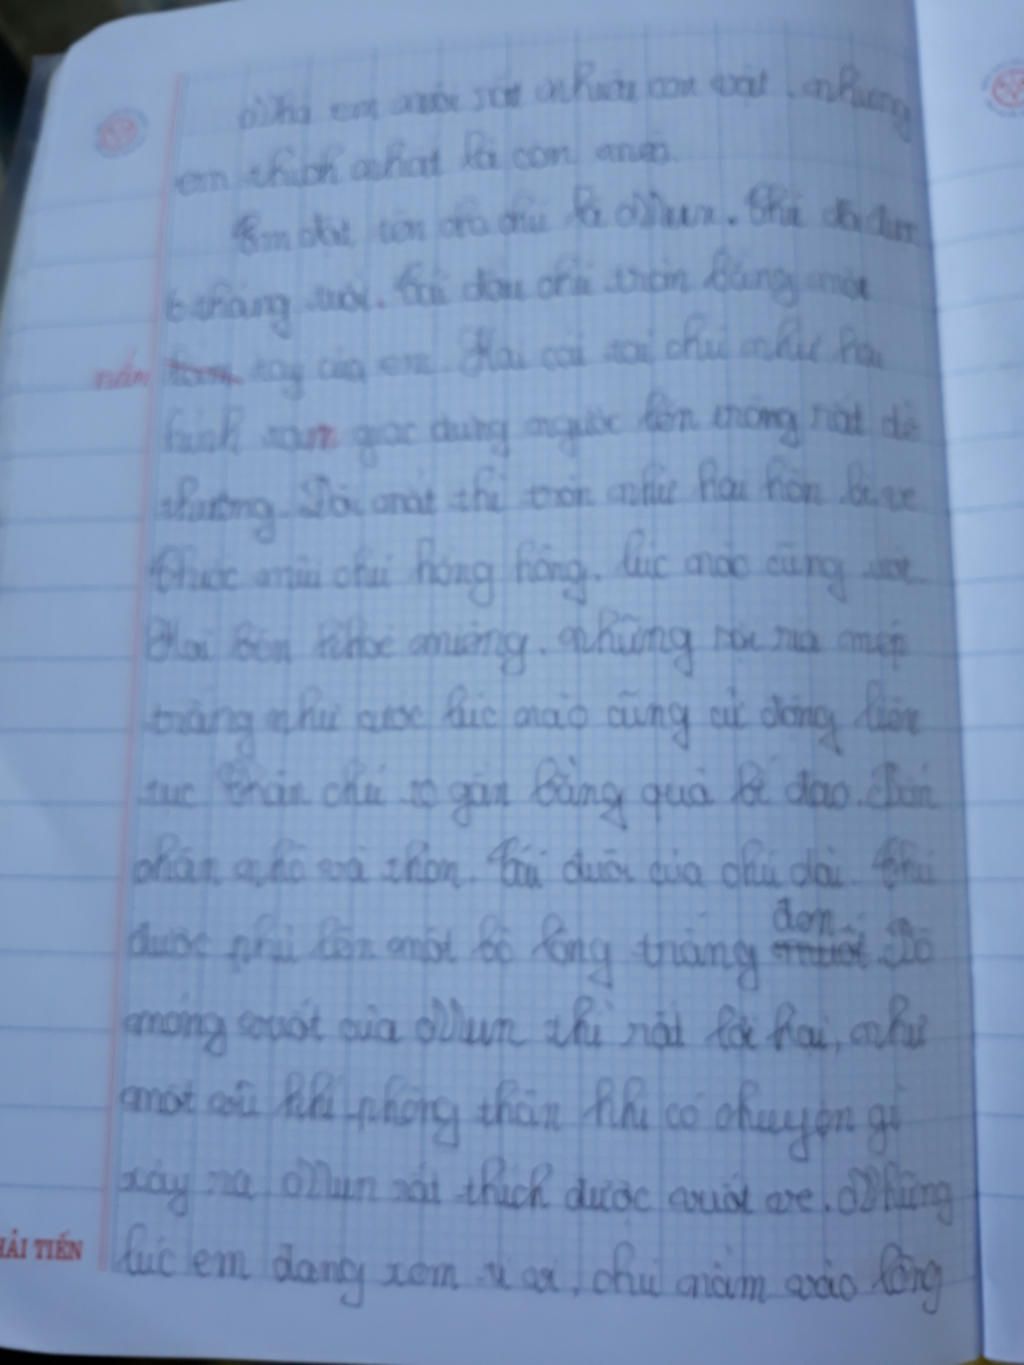 Nhà em nuôi rất nhiều con vật, nhưng
em thích nhất là con mèo.
Em đặt tên cho chú là Mun. Chú đã được
6 tháng tuổi. Cái đầu chú tròn bằng một
nắm tay của em. Hai cái tai chú như hai
hình tam giác dựng ngược lên trông rất dễ
thương. Đôi mắt thì tròn như hai hòn bi ve
Chiếc mũi chú hồng hồng, lúc nào cũng ướt.
Hai bên khoé miệng, những ria mép
trắng như cước lúc nào cũng cử động liên
tục Thân chú to gần bằng quả bí đao. Bốn
chân nhỏ và thon. Cái đuôi của chú dài. Chú
được phủ lên một bộ lông trắng đen. Bộ
móng vuốt của Mun thì rất lợi hại, như
một vũ khí phòng thân khi có chuyện gì
xảy ra Mun rất thích được vuốt ve. Những
lúc em đang xem ti vi, chú nằm vào lòng
HẢI TIẾN